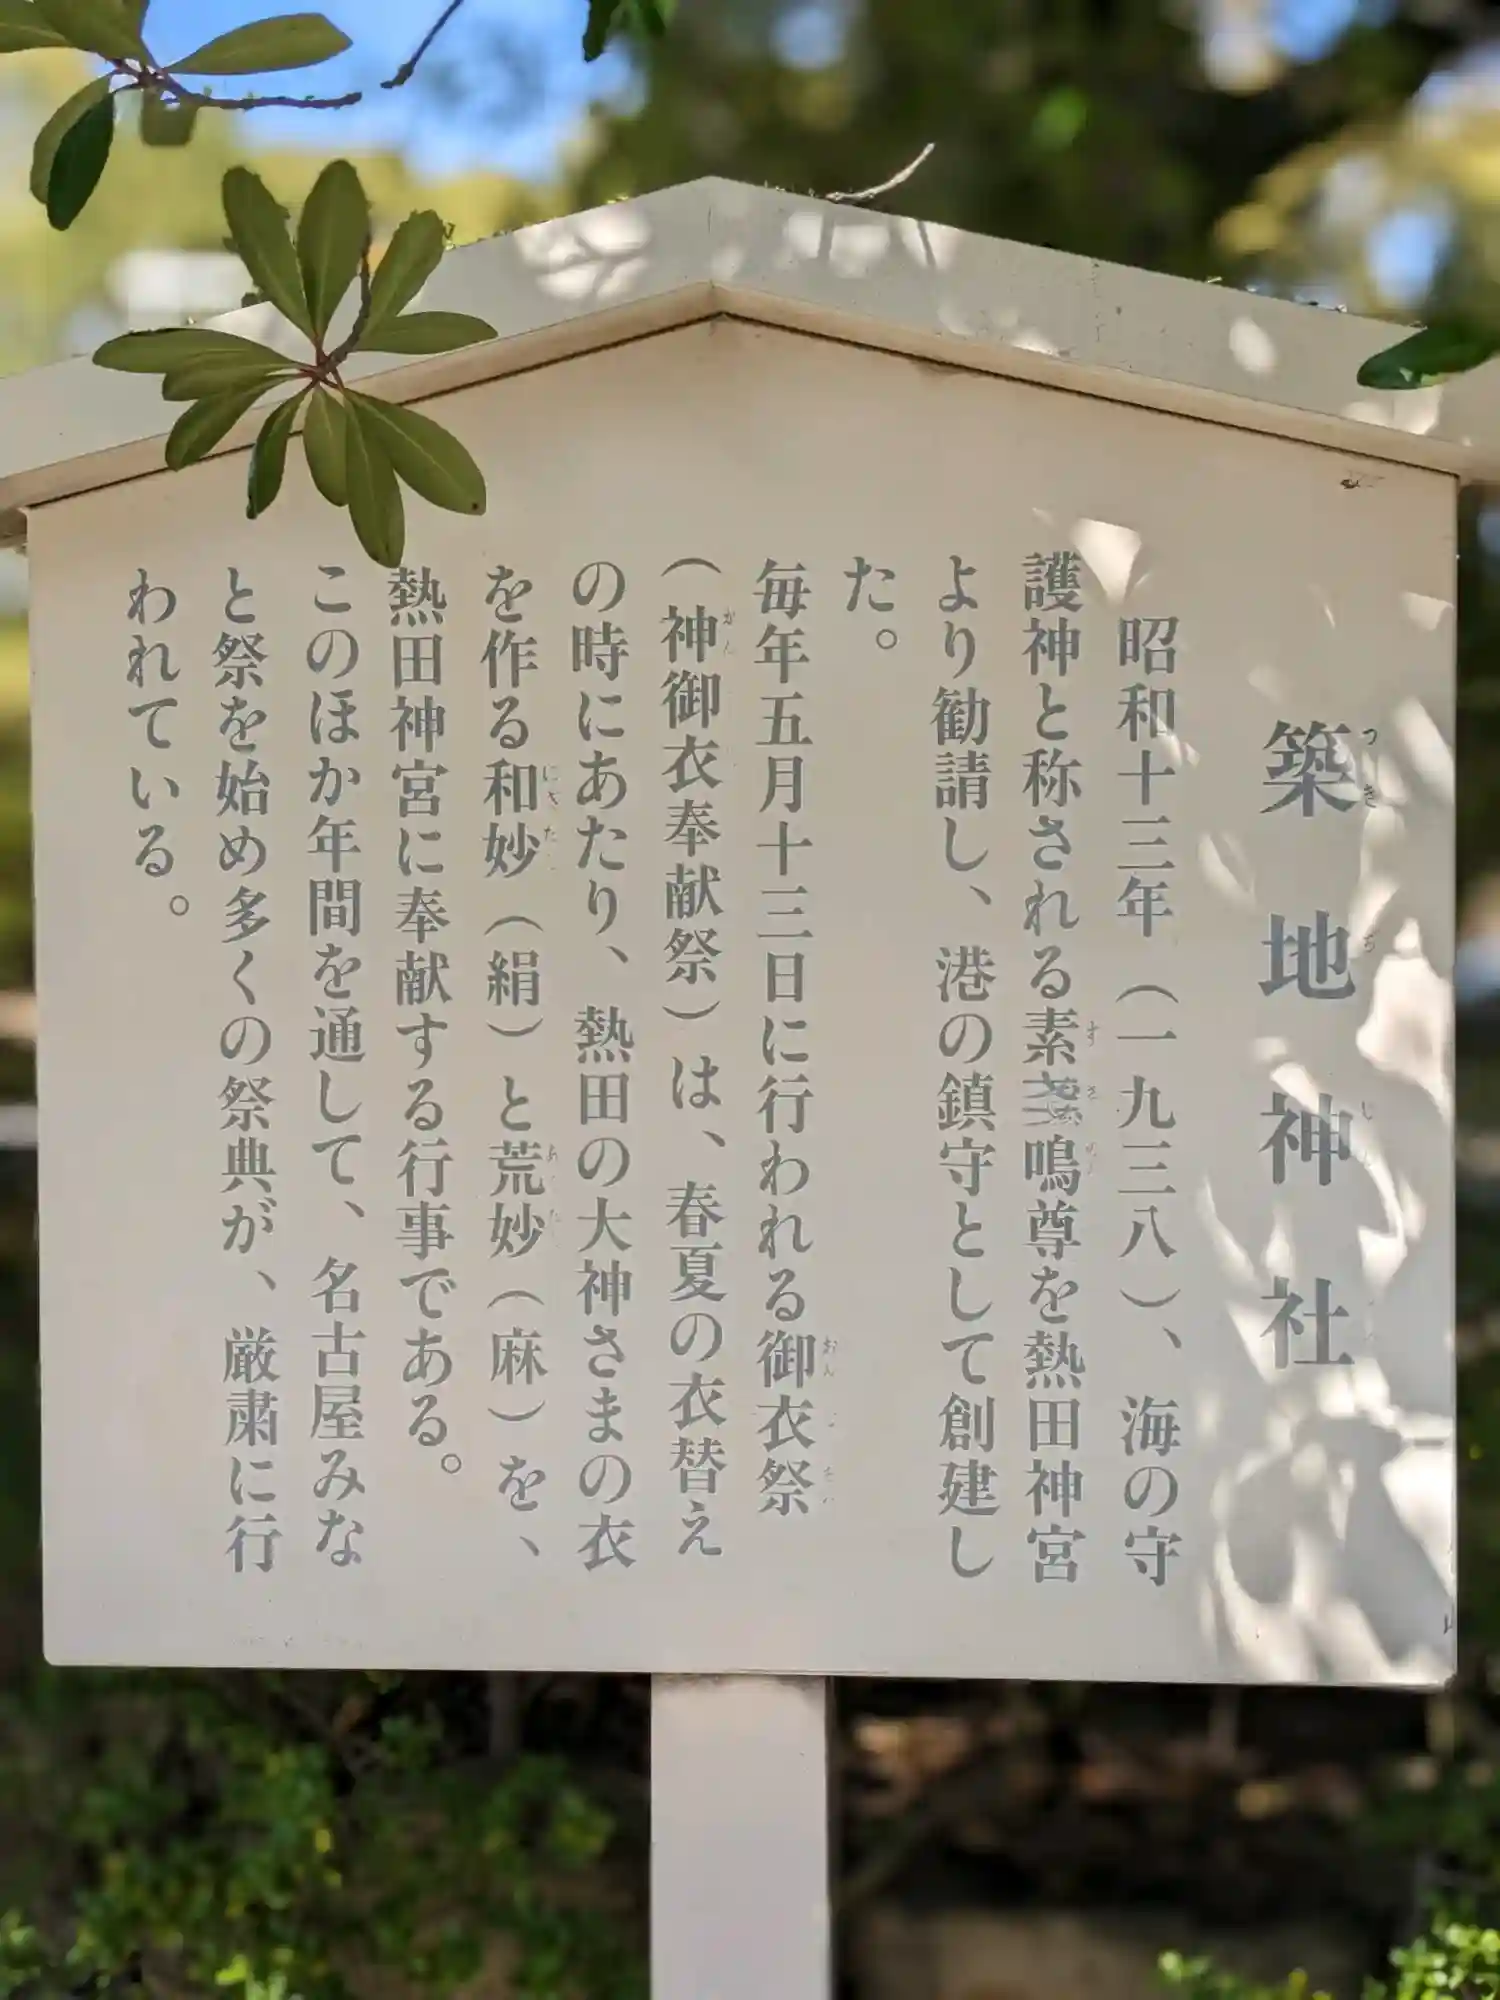 築地神社
昭和十三年(一九三八)、海の守
護神と称される素盞嗚尊を熱田神宮
より勧請し、港の鎮守として創建し
た。
毎年五月十三日に行われる御衣祭
(神御衣奉献祭)は、春夏の衣替え
の時にあたり、熱田の大神さまの衣
を作る和妙(絹)と荒妙(麻)を、
熱田神宮に奉献する行事である。
このほか年間を通して、名古屋みな
と祭を始め多くの祭典が、厳粛に行
われている。